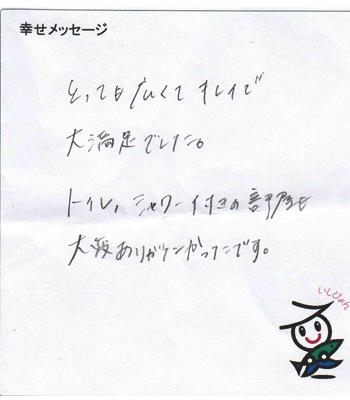 幸せメッセージ
とっても広くてキレイで
大満足でした。
トイレ、シャワー付きの部屋も
大変ありがたかったです。
いしぴょん